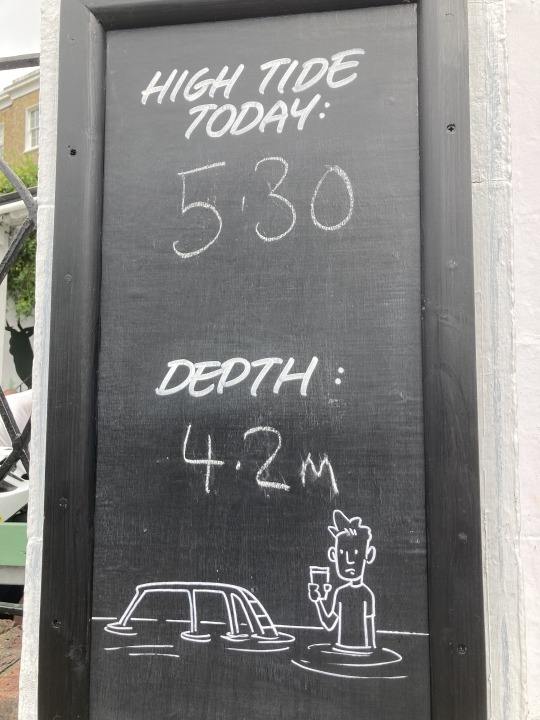 HIGH TIDE
TODAY:
5·30
DEPTH:
4·2m